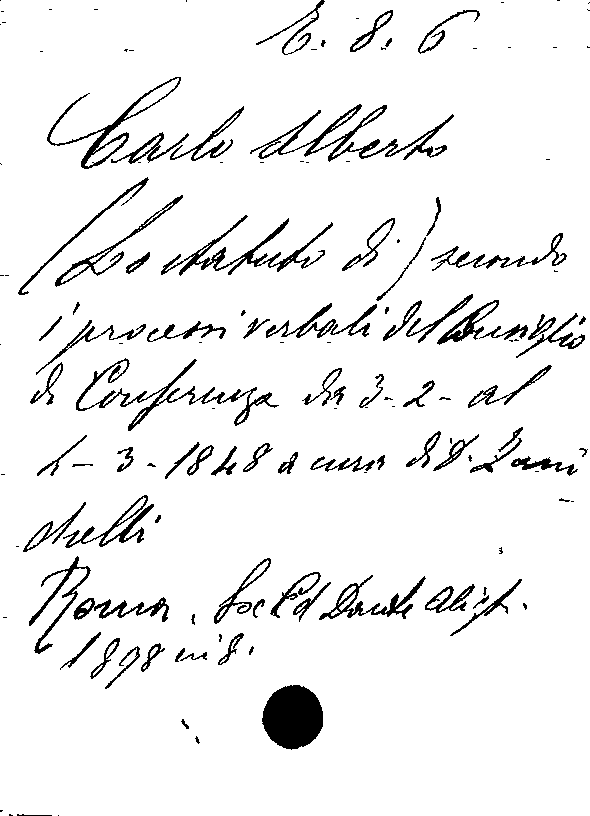 E. 8. 6
Carlo Alberto
(Lo statuto di) secondo
i processi verbali del Consiglio
di Conferenza da 3-2- al
4-3-1848 a cura di D. Zani
chelli
Roma. Soc Ed Dante Aligh.
1898 in 8.